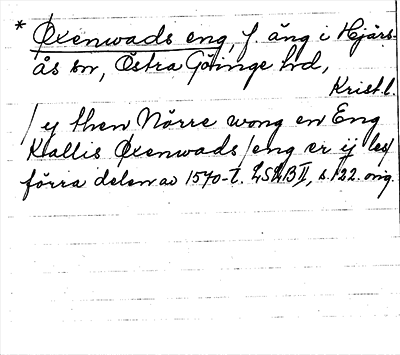 * Øxenwads eng, f. äng i Hjärs-
ås sn, Östra Göinge hd,
Krist. l.
/ y then Nörre wong en Eng
Kallis Øxenwads/eng er ij les/
förra delen av 1570-t. LSLB II, s. 122. orig.